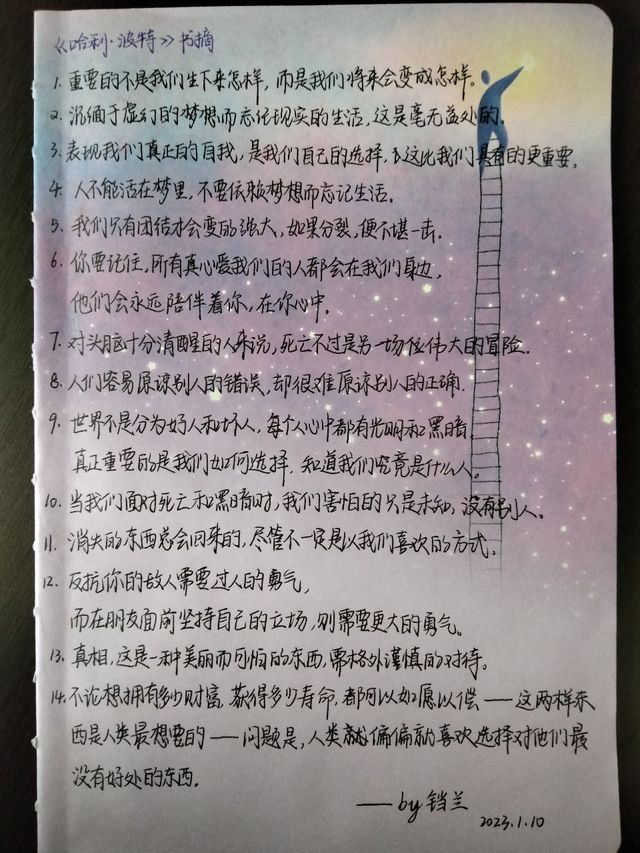 《哈利·波特》书摘
1. 重要的不是我们生下来怎样，而是我们将来会变成怎样。
2. 沉湎于虚幻的梦想而忘记现实的生活，这是毫无益处的。
3. 表现我们真正的自我，是我们自己的选择，这比我们具有的更重要。
4. 人不能活在梦里，不要依赖梦想而忘记生活。
5. 我们只有团结才会变的强大，如果分裂，便不堪一击。
6. 你要记住，所有真心爱我们的人都会在我们身边，
他们会永远陪伴着你，在你心中。
7. 对头脑十分清醒的人来说，死亡不过是另一场伟大的冒险。
8. 人们容易原谅别人的错误，却很难原谅别人的正确。
9. 世界不是分为好人和坏人，每个人心中都有光明和黑暗，
真正重要的是我们如何选择，知道我们究竟是什么人。
10. 当我们面对死亡和黑暗时，我们害怕的只是未知，没有别人。
11. 消失的东西总会回来的，尽管不一定是以我们喜欢的方式。
12. 反抗你的敌人需要过人的勇气，
而在朋友面前坚持自己的立场，则需要更大的勇气。
13. 真相，这是一种美丽而可怕的东西，需格外谨慎的对待。
14. 不论想拥有多少财富，获得多少寿命，都可以如愿以偿——这两样东
西是人类最想要的——问题是，人类就偏偏就喜欢选择对他们最
没有好处的东西。
——by 铛兰
2023.1.10